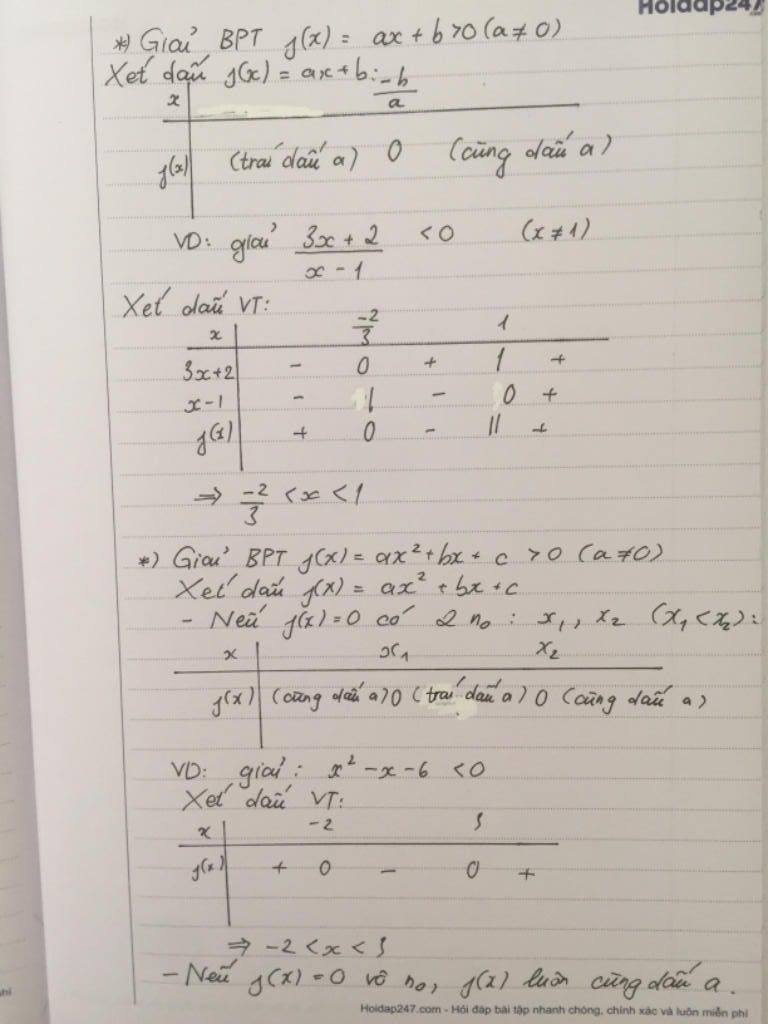 Hoidap247
*) Giải BPT f(x) = ax + b > 0 (a ≠ 0)
Xét dấu f(x) = ax + b:
x | -b/a
f(x) | (trái dấu a) 0 (cùng dấu a)
VD: giải (3x + 2)/(x - 1) < 0 (x ≠ 1)
Xét dấu VT:
x | -2/3 1
3x+2 | - 0 + | +
x-1 | - | - 0 +
f(x) | + 0 - || +
⇒ -2/3 < x < 1
*) Giải BPT f(x) = ax² + bx + c > 0 (a ≠ 0)
Xét dấu f(x) = ax² + bx + c
- Nếu f(x) = 0 có 2 no : x₁, x₂ (x₁ < x₂):
x | x₁ x₂
f(x) | (cùng dấu a) 0 (trái dấu a) 0 (cùng dấu a)
VD: giải : x² - x - 6 < 0
Xét dấu VT:
x | -2 3
f(x) | + 0 - 0 +
⇒ -2 < x < 3
- Nếu f(x) = 0 vô no, f(x) luôn cùng dấu a.
Hoidap247.com - Hỏi đáp bài tập nhanh chóng, chính xác và luôn miễn phí